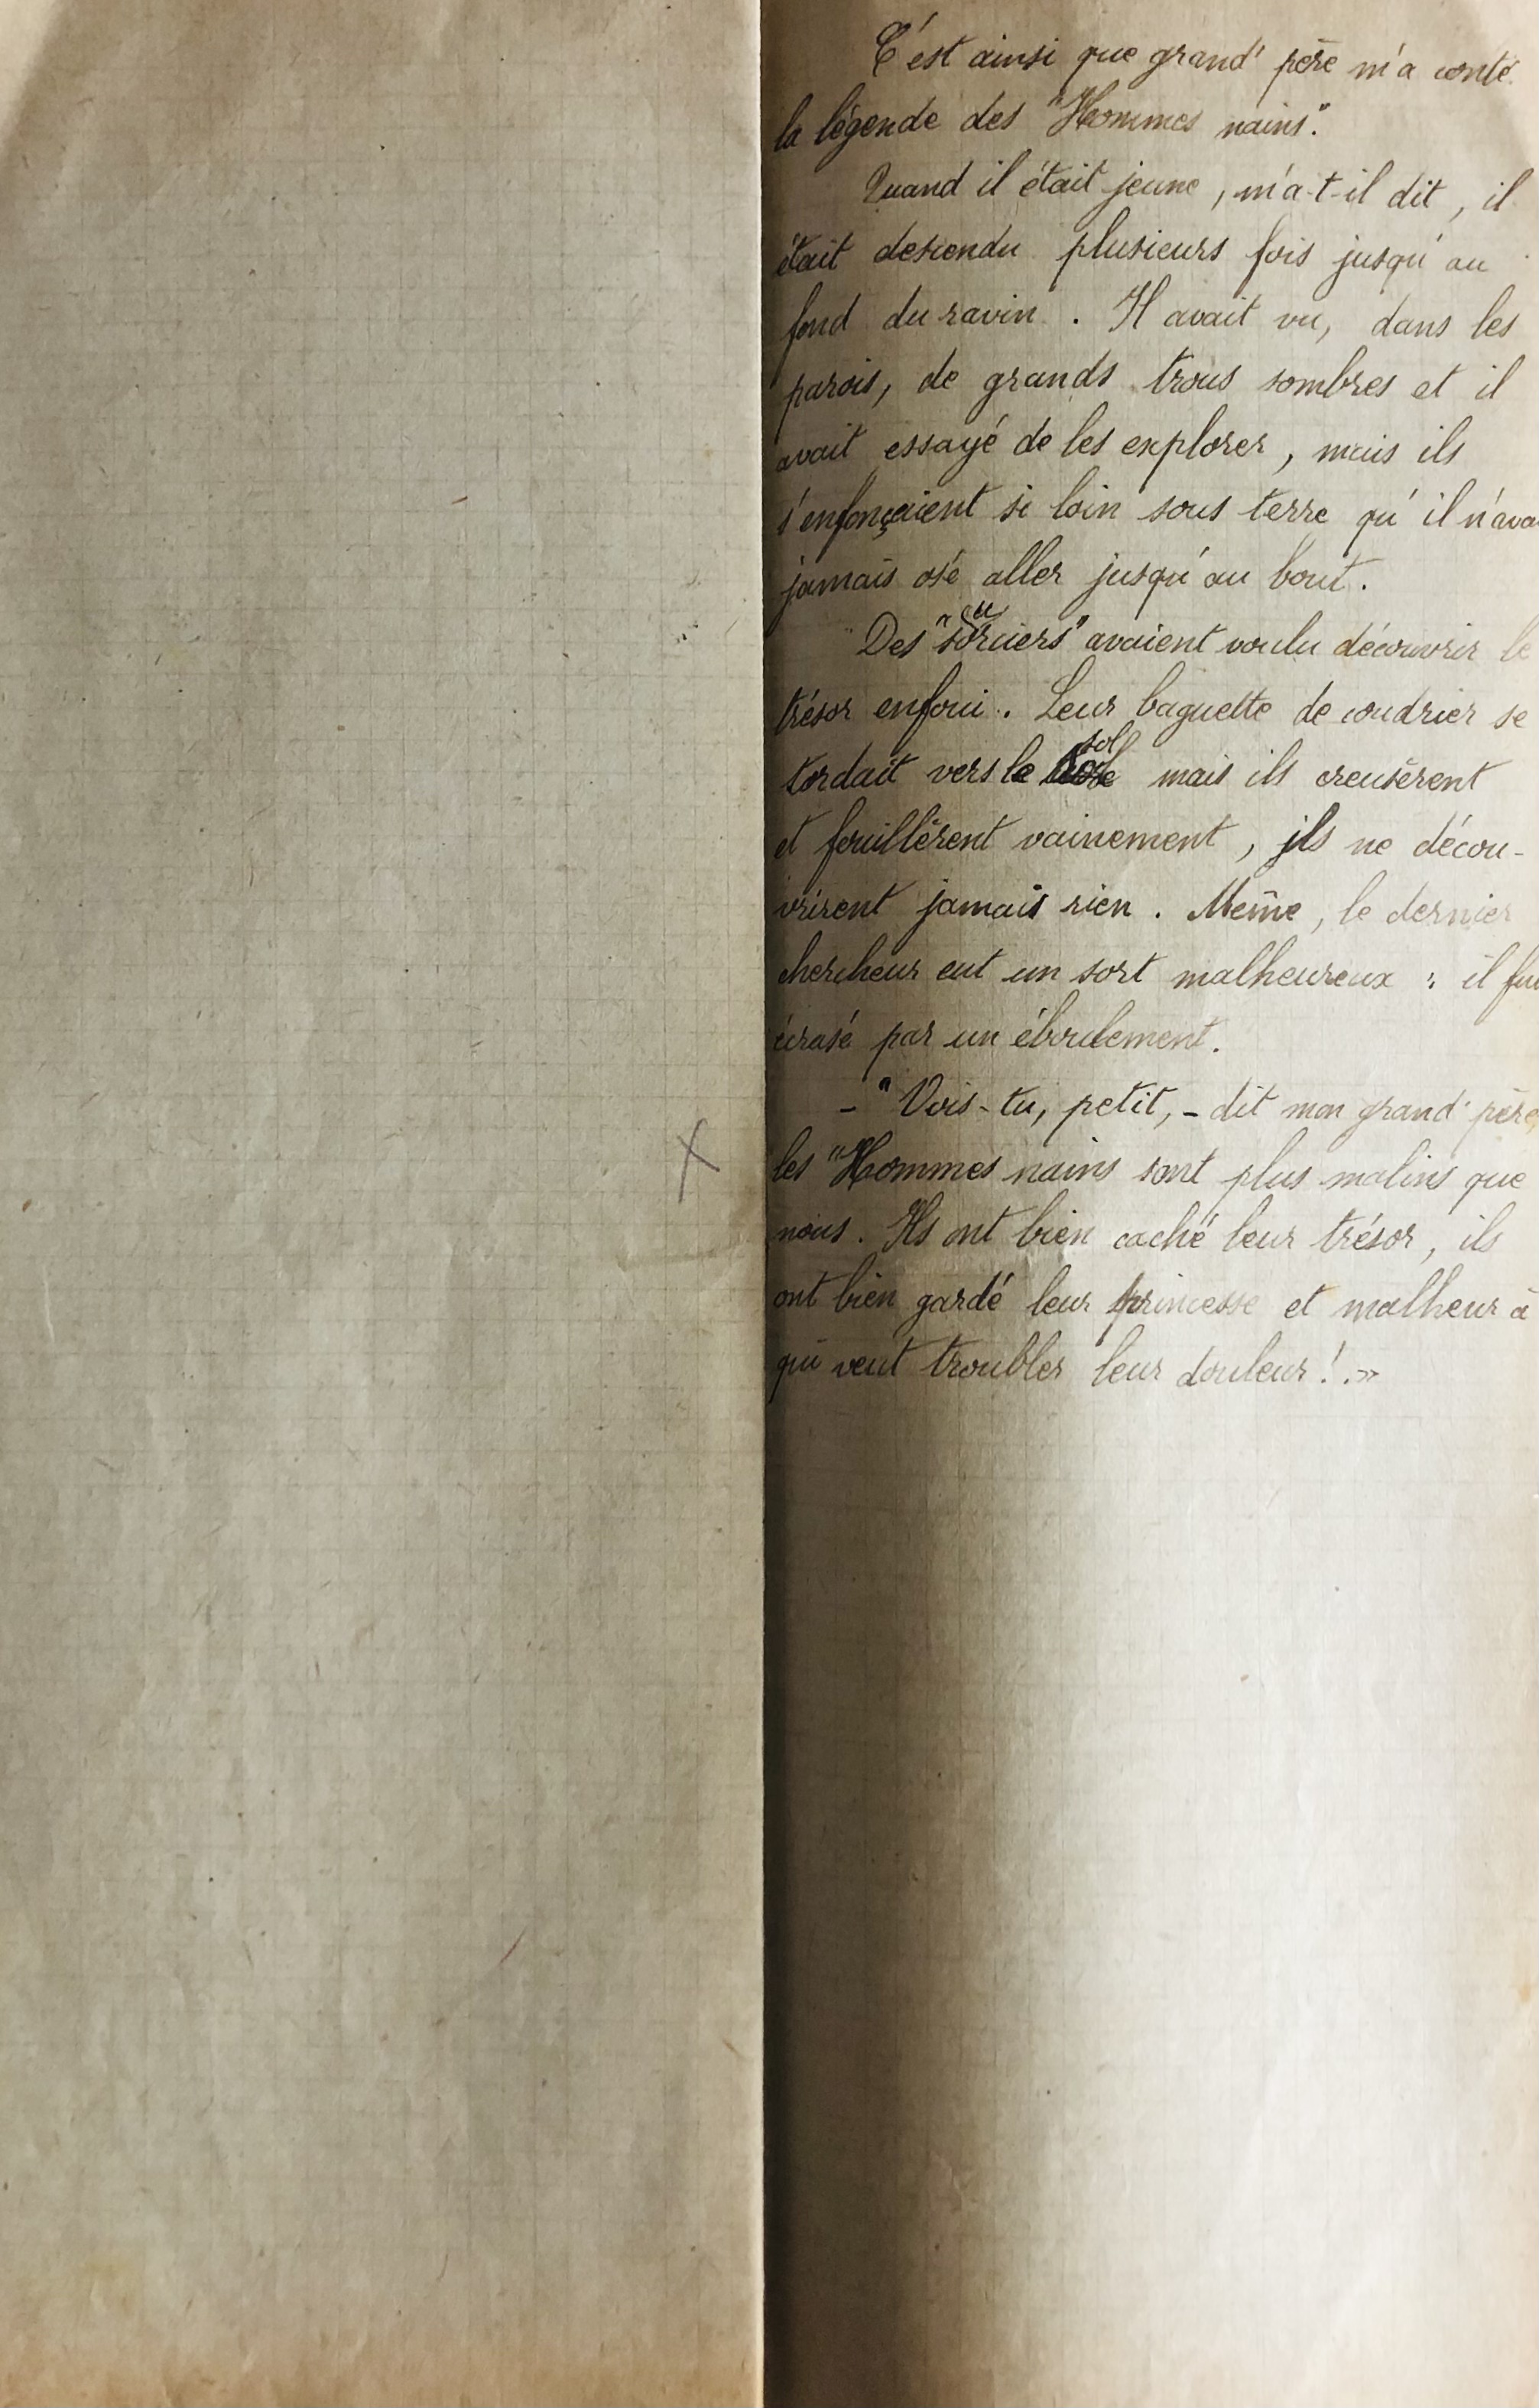 C'est ainsi que grand' père m'a conté
la légende des "Hommes nains".
Quand il était jeune, m'a-t-il dit, il
était descendu plusieurs fois jusqu'au
fond du ravin. Il avait vu, dans les
parois, de grands trous sombres et il
avait essayé de les explorer, mais ils
s'enfonçaient si loin sous terre qu'il n'ava
jamais osé aller jusqu'au bout.
Des "sourciers" avaient voulu découvrir le
trésor enfoui. Leur baguette de coudrier se
tordait vers le sol mais ils creusèrent
et fouillèrent vainement, ils ne décou-
vrirent jamais rien. Même, le dernier
chercheur eut un sort malheureux : il fu
écrasé par un éboulement.
- "Vois-tu, petit, - dit mon grand' père,
les "Hommes nains sont plus malins que
nous. Ils ont bien caché leur trésor, ils
ont bien gardé leur princesse et malheur à
qui veut troubler leur douleur ! . »
X